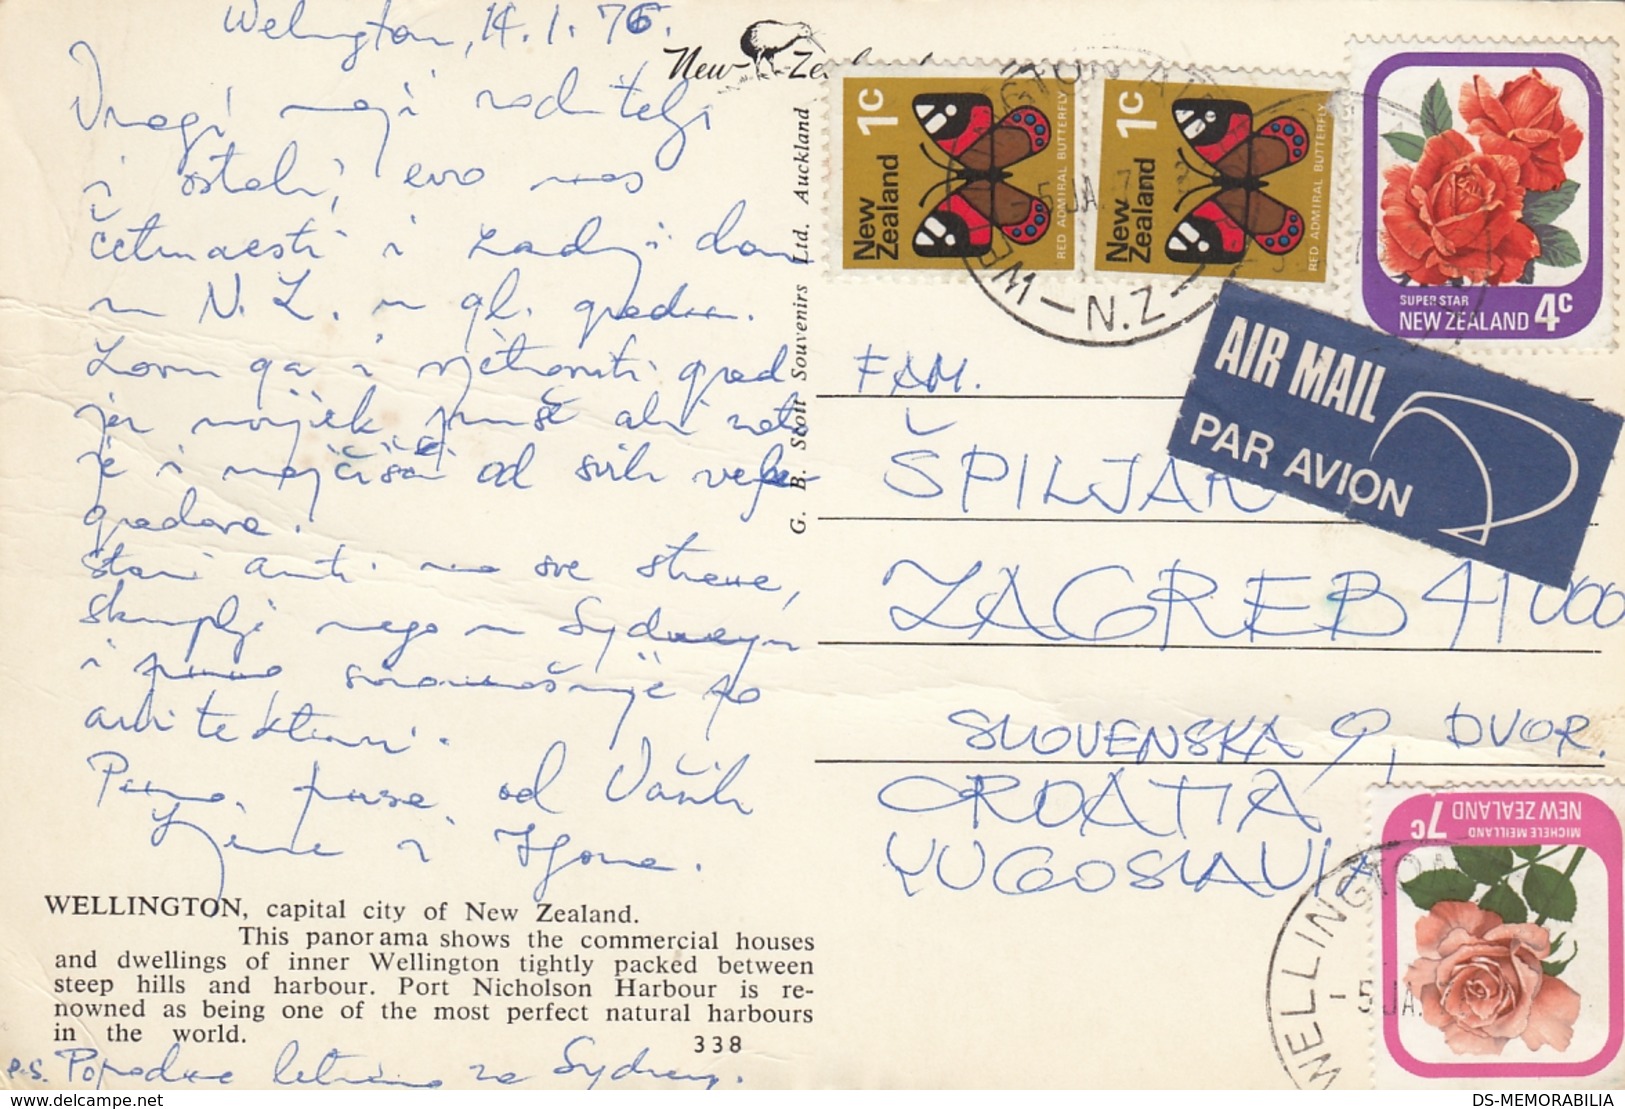 Welington, 14.1.76.
Dragi moji roditelji
i ostali, evo nas
četrnaesti i zadnji dan
u N.Z. u gl. gradu.
Zovu ga i vjetroviti grad
jer uvijek puše ali zato
je i najčišći od svih
gradova.
Stari auti na sve strane,
skuplje nego u Sydneyu
i puno siromašnije po
arhitekturi.
Puno puse od Vaših
i
New Zealand
G. B. Scott Souvenirs Ltd. Auckland
1c
New Zealand
RED ADMIRAL BUTTERFLY
1c
New Zealand
RED ADMIRAL BUTTERFLY
SUPER STAR
NEW ZEALAND 4c
N.Z.
AIR MAIL
PAR AVION
FAM.
ŠPILJAR
ZAGREB 41000
SLOVENSKA 9, DVOR.
CROATIA
YUGOSLAVIA
MICHELE MEILLAND
NEW ZEALAND 7c
WELLINGTON
-5 JA.
WELLINGTON, capital city of New Zealand.
This panorama shows the commercial houses
and dwellings of inner Wellington tightly packed between
steep hills and harbour. Port Nicholson Harbour is re-
nowned as being one of the most perfect natural harbours
in the world.
338
P.S. Popodne letimo za Sydney.
delcampe.net
DS-MEMORABILIA